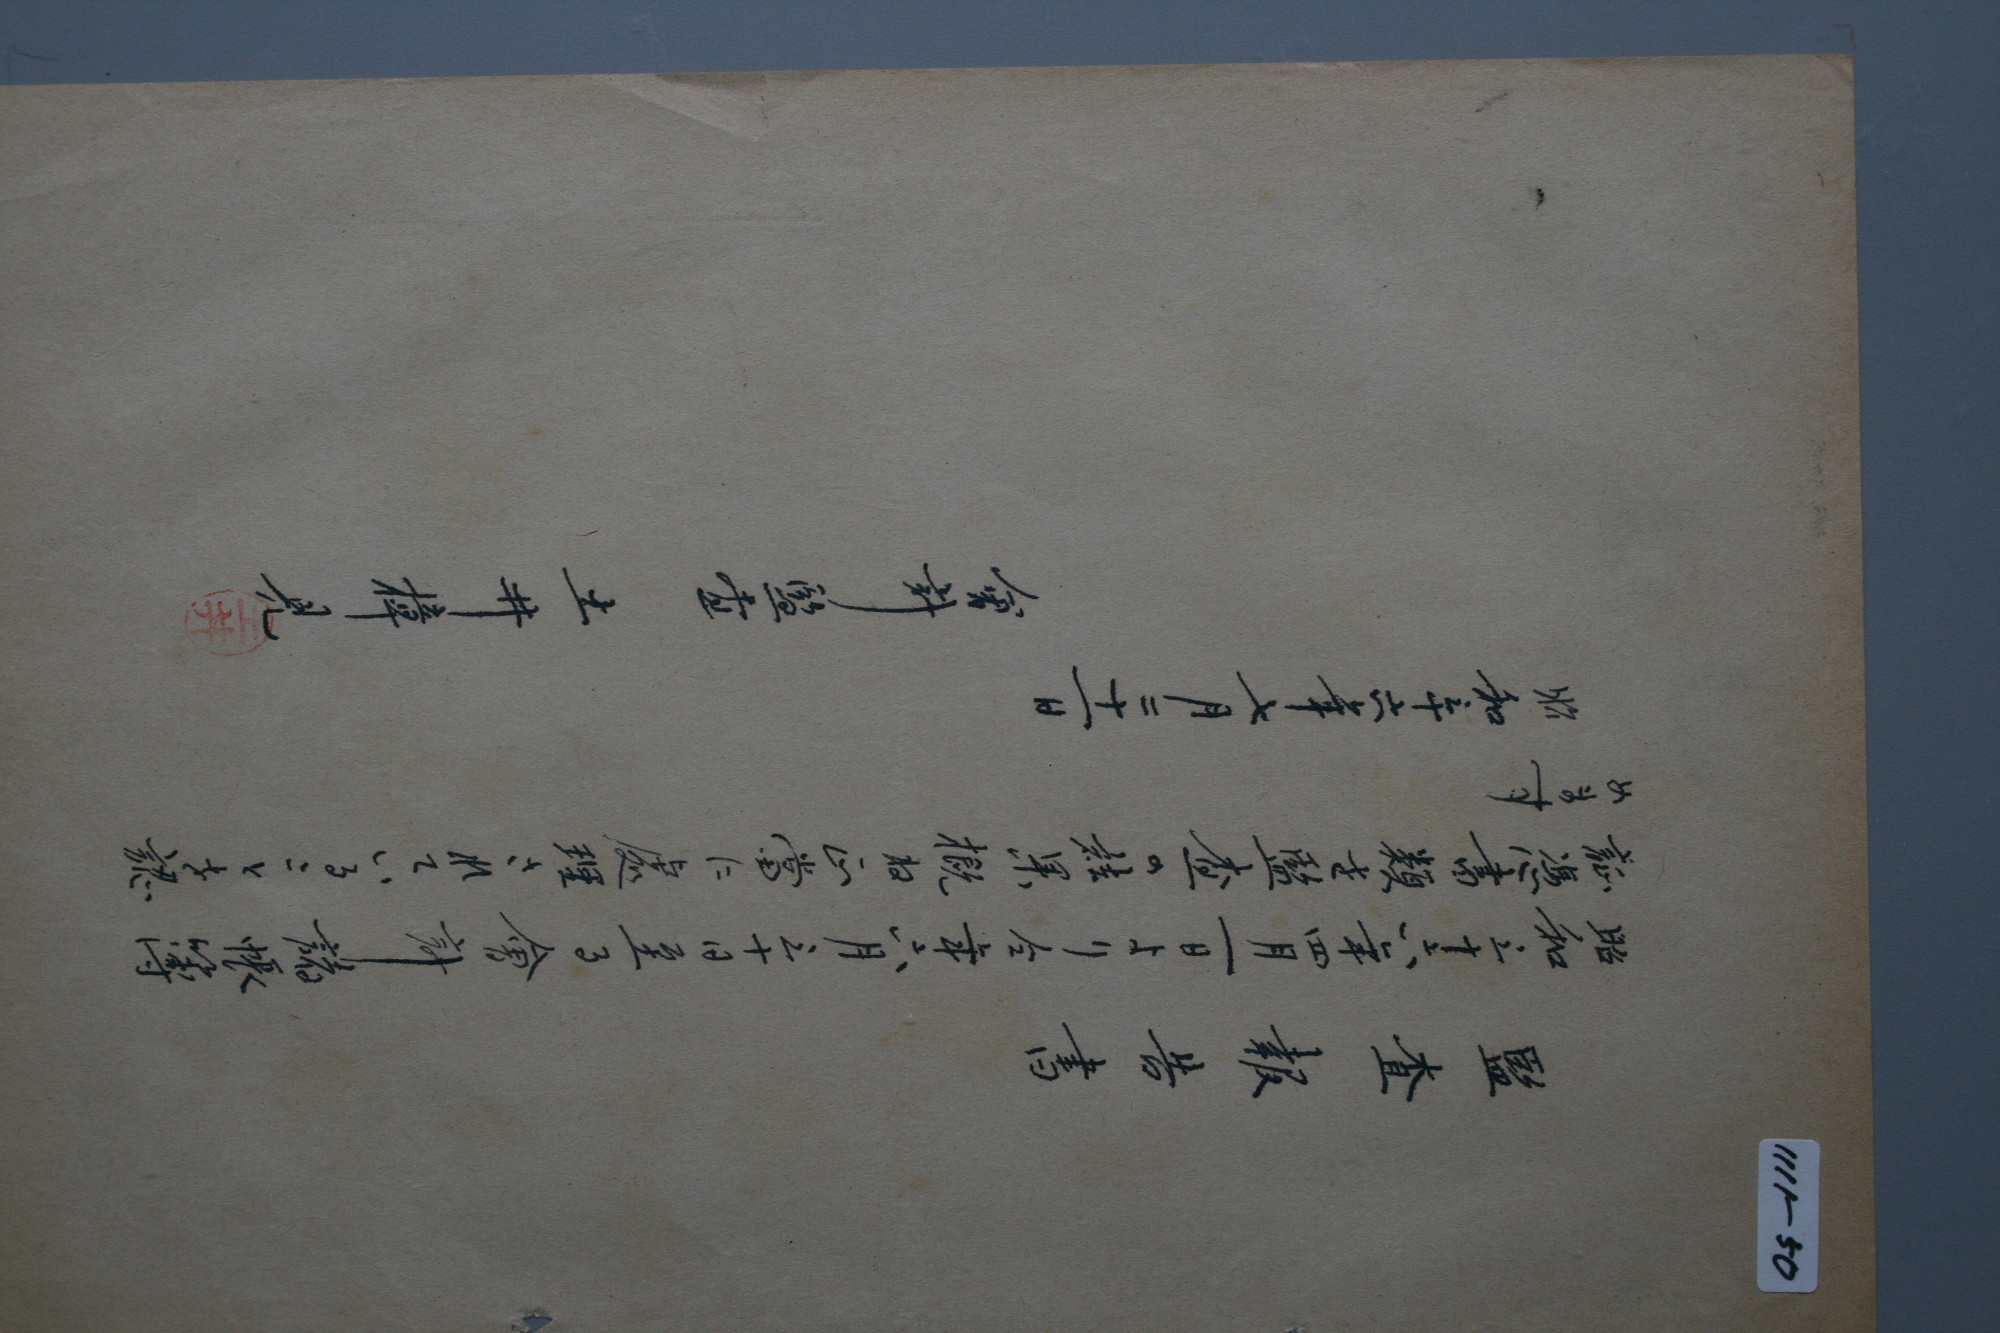 監査報告書
昭和三十六年四月一日より仝年六月三十日至る會計諸帳簿
証憑書類を監査の結果概ね正當に處理されていることを認
めます
昭和三十六年七月二十一日
會計監査 土井
1111-50